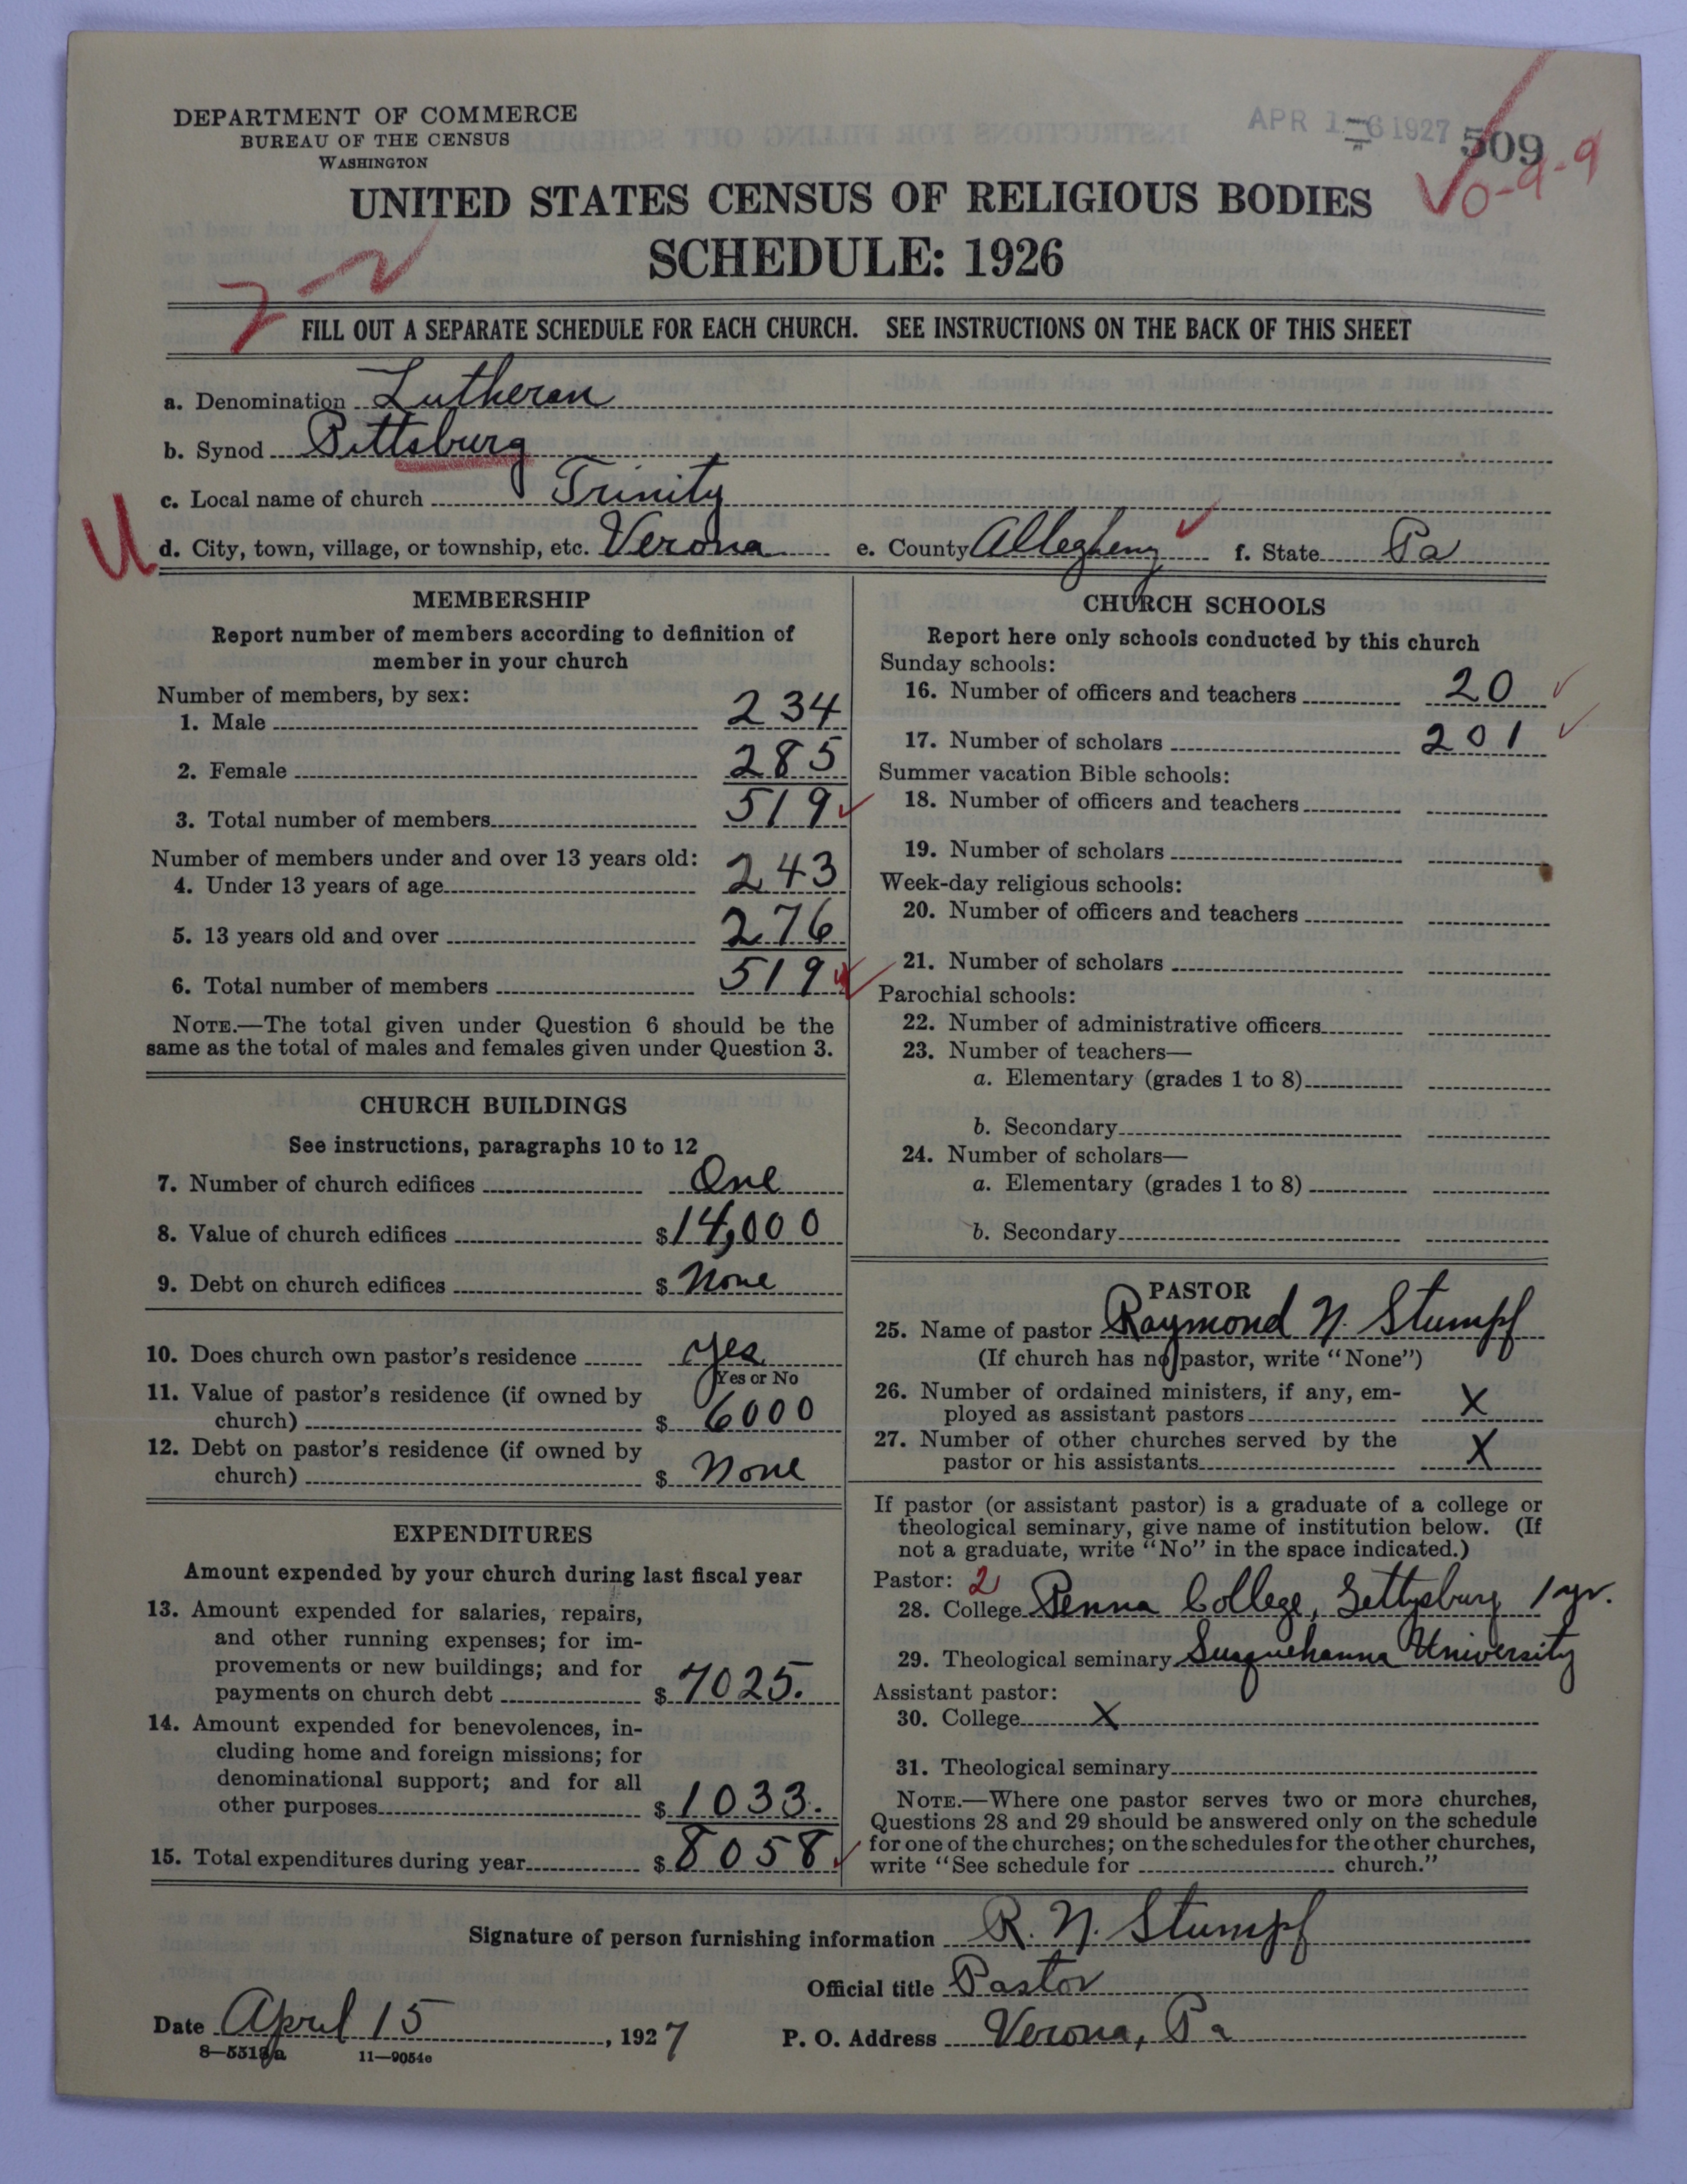 DEPARTMENT OF COMMERCE
BUREAU OF THE CENSUS
WASHINGTON
APR 16 1927 509
0-9-9
UNITED STATES CENSUS OF RELIGIOUS BODIES
SCHEDULE: 1926
FILL OUT A SEPARATE SCHEDULE FOR EACH CHURCH. SEE INSTRUCTIONS ON THE BACK OF THIS SHEET
a. Denomination Lutheran
b. Synod Pittsburg
c. Local name of church Trinity
U
d. City, town, village, or township, etc. Verona e. County Allegheny f. State Pa
MEMBERSHIP
Report number of members according to definition of
member in your church
Number of members, by sex:
1. Male 234
2. Female 285
3. Total number of members 519
Number of members under and over 13 years old:
4. Under 13 years of age 243
5. 13 years old and over 276
6. Total number of members 519
NOTE.—The total given under Question 6 should be the
same as the total of males and females given under Question 3.
CHURCH BUILDINGS
See instructions, paragraphs 10 to 12
7. Number of church edifices One
8. Value of church edifices $14,000
9. Debt on church edifices $ None
10. Does church own pastor's residence Yes
Yes or No
11. Value of pastor's residence (if owned by
church) $ 6000
12. Debt on pastor's residence (if owned by
church) $ None
EXPENDITURES
Amount expended by your church during last fiscal year
13. Amount expended for salaries, repairs,
and other running expenses; for im-
provements or new buildings; and for
payments on church debt $ 7025.
14. Amount expended for benevolences, in-
cluding home and foreign missions; for
denominational support; and for all
other purposes $ 1033.
15. Total expenditures during year $ 8058
CHURCH SCHOOLS
Report here only schools conducted by this church
Sunday schools:
16. Number of officers and teachers 20
17. Number of scholars 201
Summer vacation Bible schools:
18. Number of officers and teachers
19. Number of scholars
Week-day religious schools:
20. Number of officers and teachers
21. Number of scholars
Parochial schools:
22. Number of administrative officers
23. Number of teachers—
a. Elementary (grades 1 to 8)
b. Secondary
24. Number of scholars—
a. Elementary (grades 1 to 8)
b. Secondary
PASTOR
25. Name of pastor Raymond N. Stumpf
(If church has no pastor, write "None")
26. Number of ordained ministers, if any, em-
ployed as assistant pastors X
27. Number of other churches served by the
pastor or his assistants X
If pastor (or assistant pastor) is a graduate of a college or
theological seminary, give name of institution below. (If
not a graduate, write "No" in the space indicated.)
Pastor: 2
28. College Penna College, Gettysburg 1 yr.
29. Theological seminary Susquehanna University
Assistant pastor:
30. College X
31. Theological seminary
NOTE.—Where one pastor serves two or more churches,
Questions 28 and 29 should be answered only on the schedule
for one of the churches; on the schedules for the other churches,
write "See schedule for church."
Signature of person furnishing information R. N. Stumpf
Official title Pastor
Date April 15, 1927 P. O. Address Verona, Pa
8—5518a 11—9054e